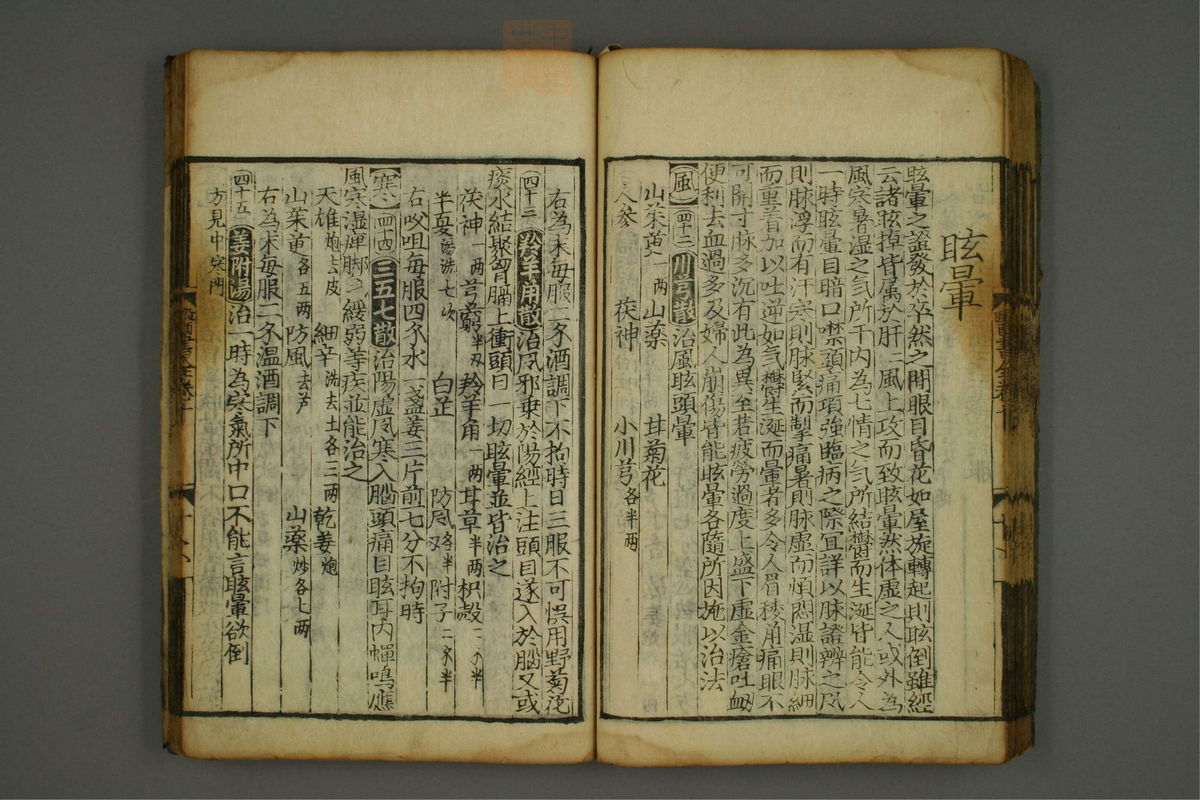 眩暈
眩暈之證發於卒然之間眼目昏花如屋旋轉起則眩倒雖經
云諸眩掉皆属於肝二風上攻而致眩暈然体虚之人或外為
風寒暑湿之气所干内為七情之气所結欝而生涎皆能令人
一時眩暈目暗口噤頭痛項強臨病之際宜詳以脉證辨之风
則脉浮而有汗寒則脉緊而掣痛暑則脉虚而煩悶湿則脉細
而重着加以吐逆如气欝生涎而暈者多令人眉稜角痛眼不
可開寸脉多沉有此為異至若疲勞過度上盛下虚金瘡吐衂
便利去血過多及婦人崩傷皆能眩暈各隨所因施以治法
(風)(四十二)川芎散治風眩頭暈
山茱萸一两 山薬 甘菊花
人参 茯神 小川芎各半两
右為末每服二不酒調下不拘時日三服不可悞用野菊花
(四十三)羚羊角散治风邪乗於陽經上注頭目遂入於腦又或
痰水結聚胷膈上衝頭目一切眩暈並皆治之
茯神一两 芎藭半刄 羚羊角一两 甘草半两 枳殼二不半
半夏湯洗七次 白芷 防风刄各半 附子二不半
右㕮咀每服四不水一盞姜三片前七分不拘時
(寒)(四十四)三五七散治陽虚风寒入腦頭痛目眩耳内蟬鳴應
風寒湿痺脚气緩弱等疾並能治之
天雄炮去皮 細辛洗去土各三两 乾姜炮
山茱萸各五两 防風去芦 山薬炒各七两
右為末每服二不温酒調下
(四十五)姜附湯治一時為寒氣所中口不能言眩暈欲倒
方見中寒門